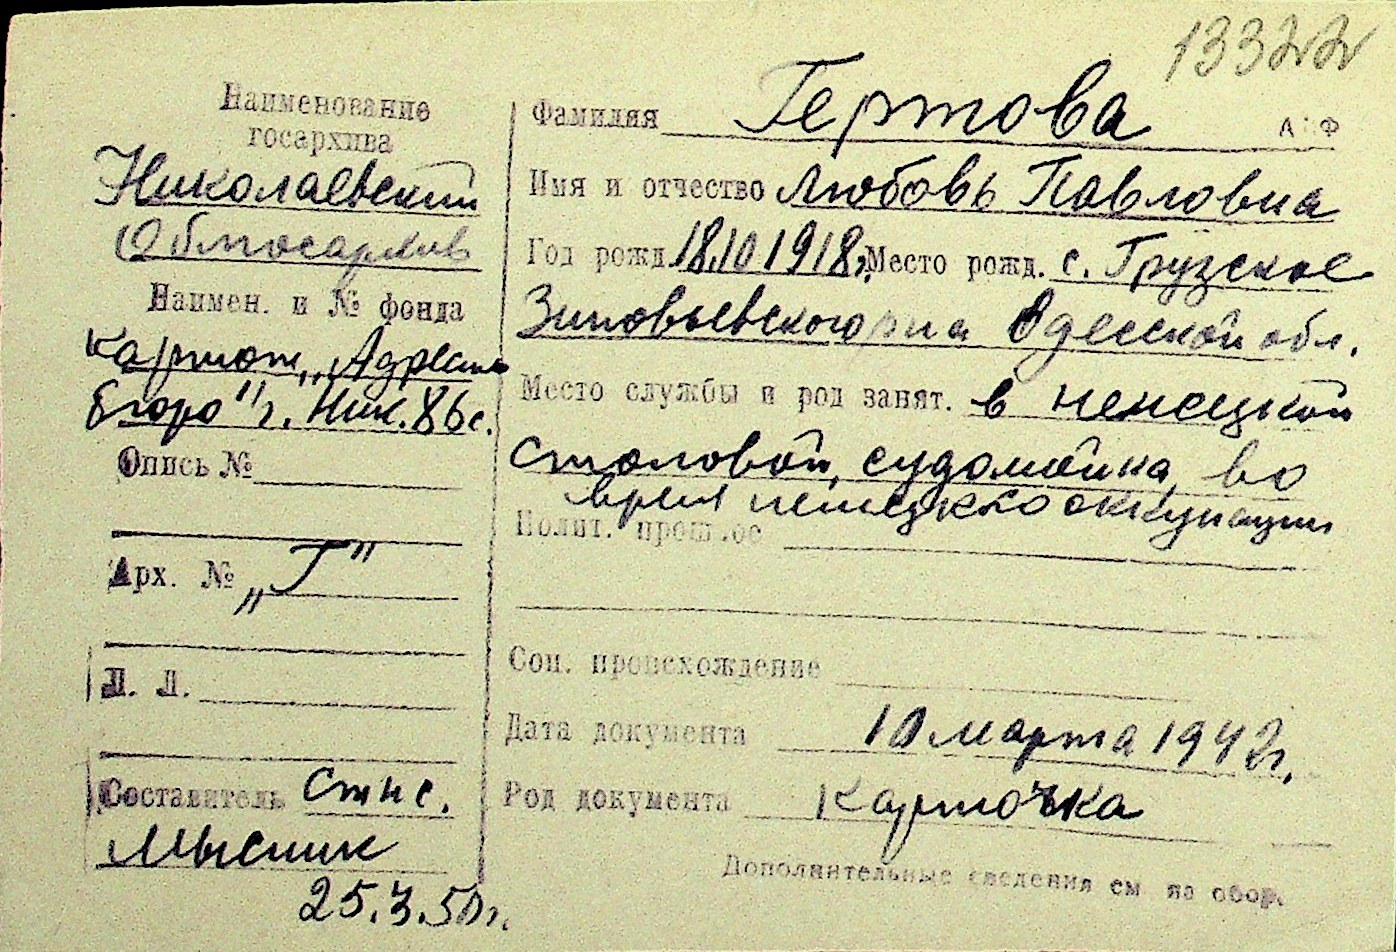 13322
Наименование
госархива
Николаевский
Облгосархив
Наимен. и № фонда
картот. „Адресн.
бюро" г. Ник. 86с.
Опись №
Арх. № „Г"
Л. Л.
Составитель Ст нс.
Мысник
25.3.50г.
Фамилия Гертова
А Ф
Имя и отчество Любовь Павловна
Год рожд. 18.10 1918г. Место рожд. с. Грузское
Зиновьевского р на Одесской обл.
Место службы и род занят. в немецкой
столовой, судомойка, во
время немецко оккупации
Полит. прошлое
Соц. происхождение
Дата документа 10 марта 1942г.
Род документа карточка
Дополнительные сведения см на обор.